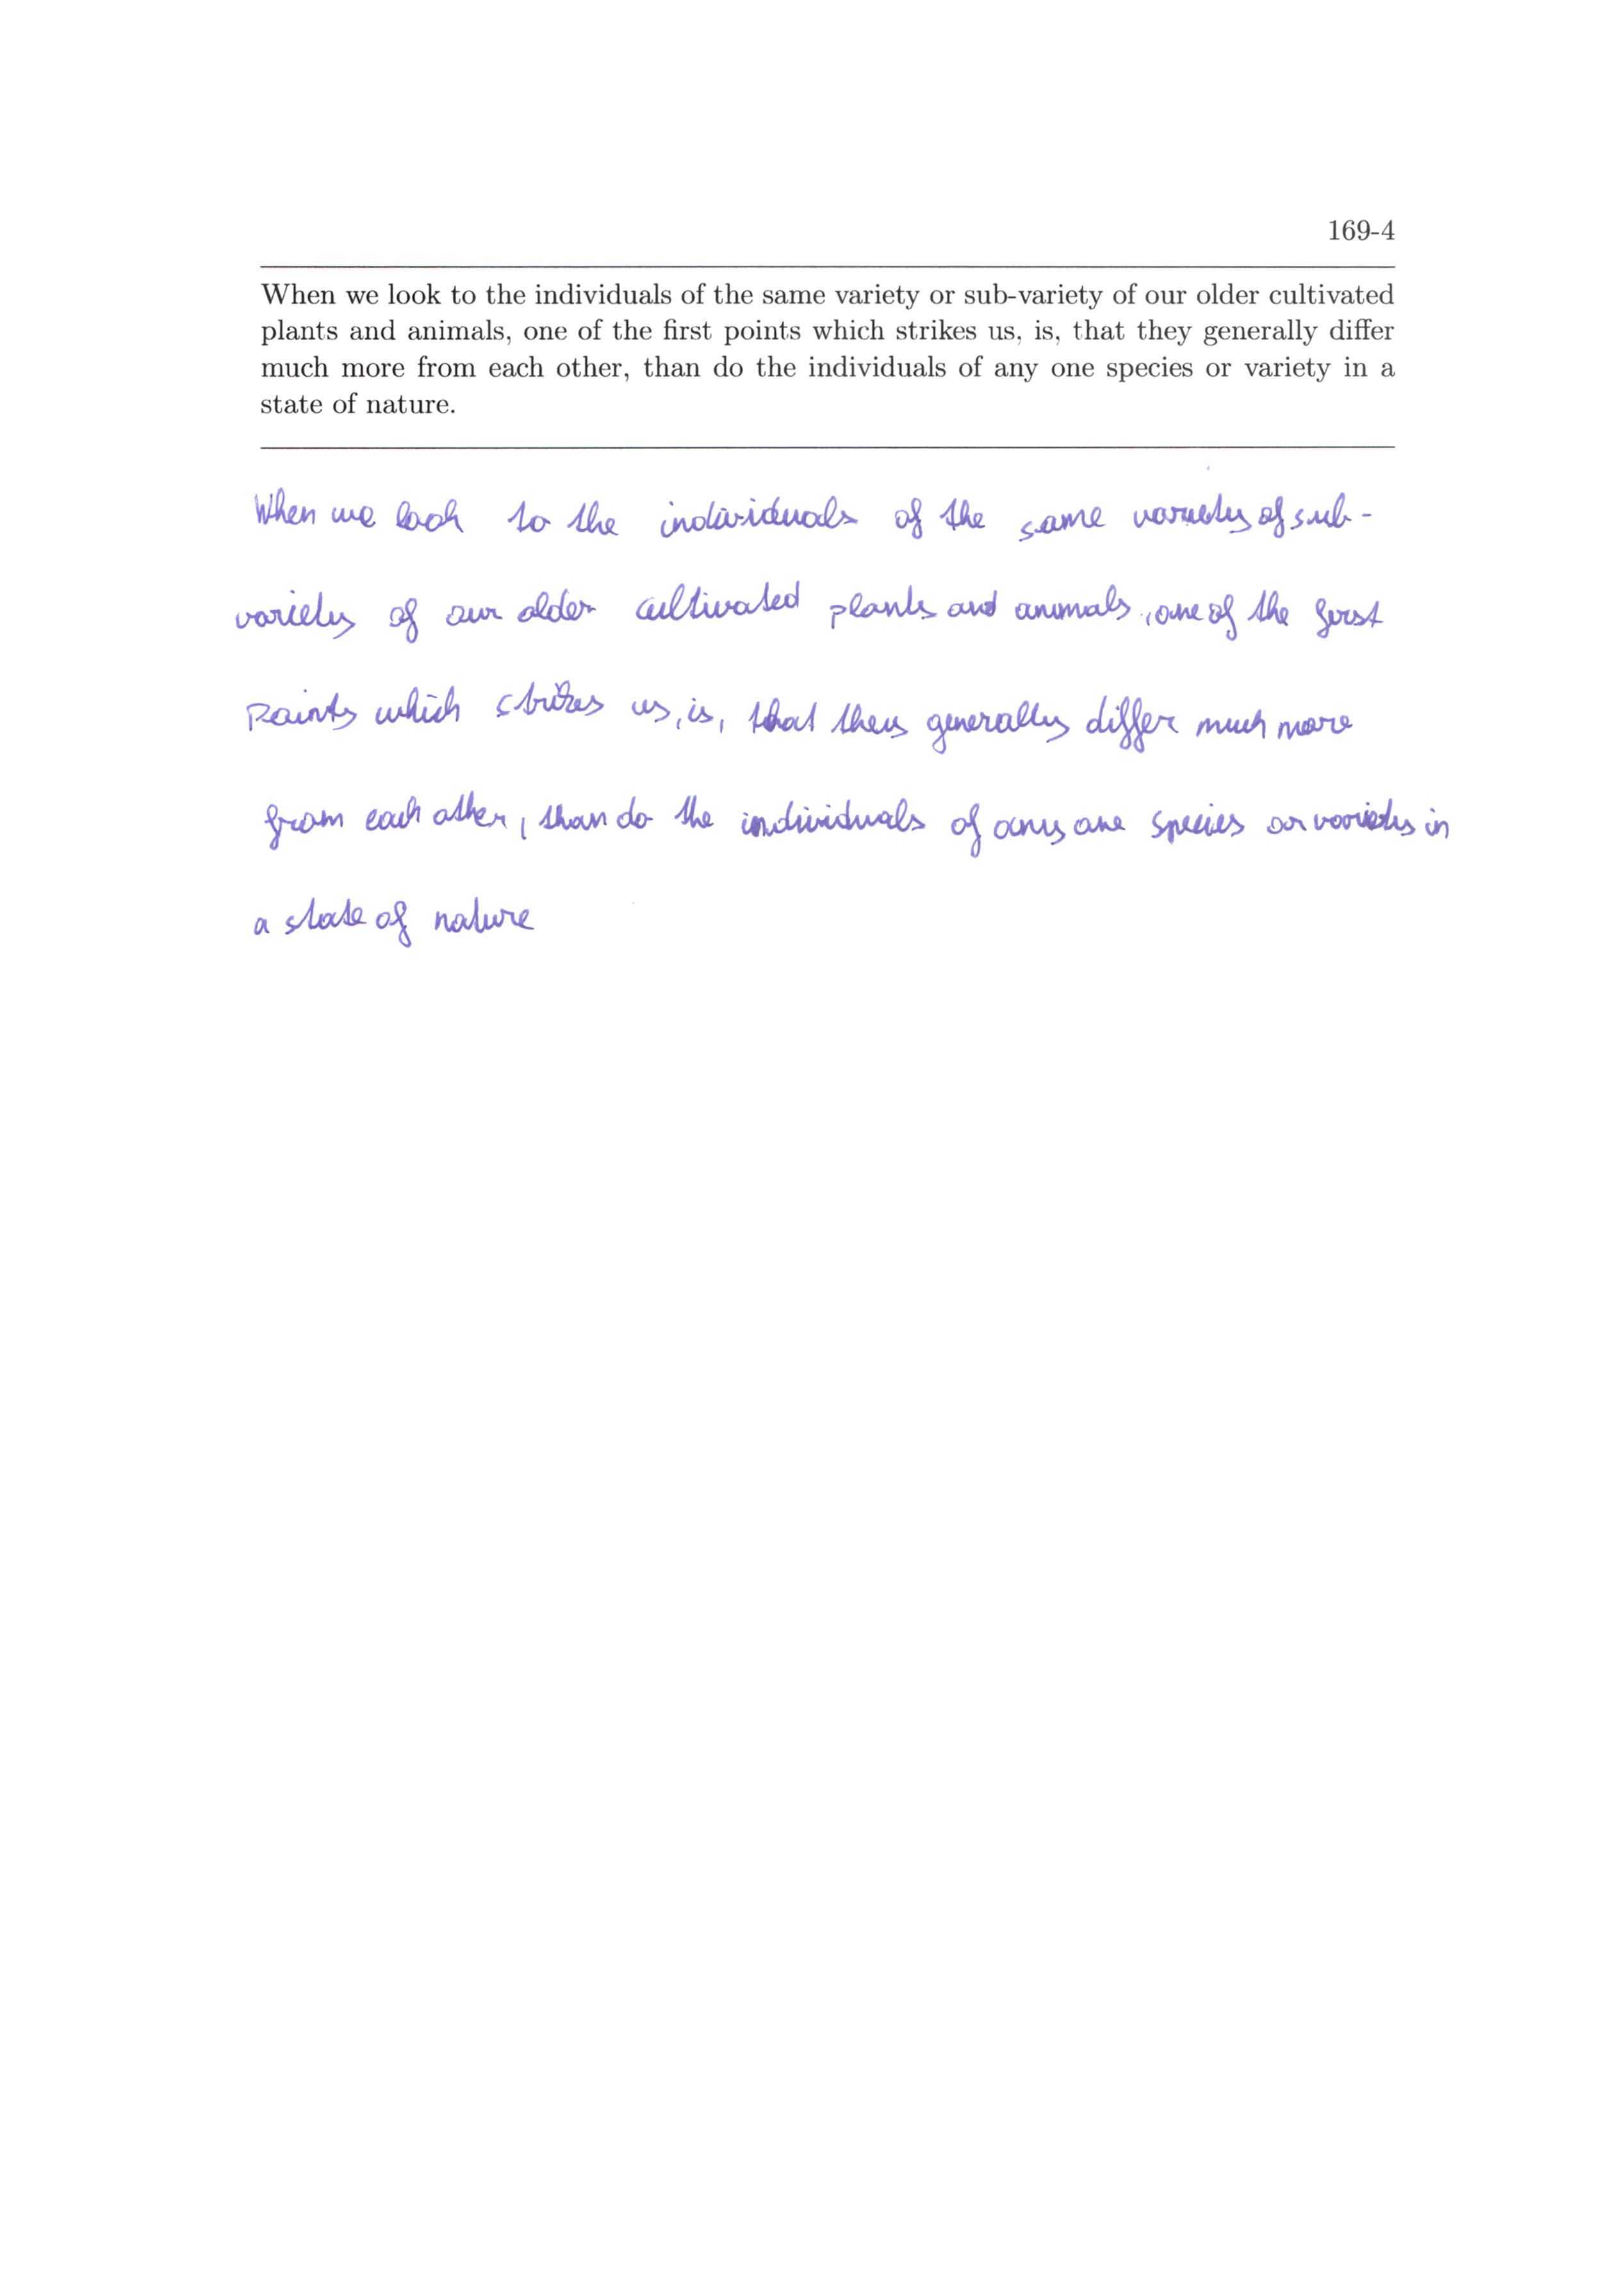 169-4
When we look to the individuals of the same variety or sub-variety of our older cultivated
plants and animals, one of the first points which strikes us, is, that they generally differ
much more from each other, than do the individuals of any one species or variety in a
state of nature.
When we look to the individuals of the same variety of sub-
variety of our older cultivated plants and animals, one of the first
points which strikes us, is, that they generally differ much more
from each other, than do the individuals of any one species or variety in
a state of nature